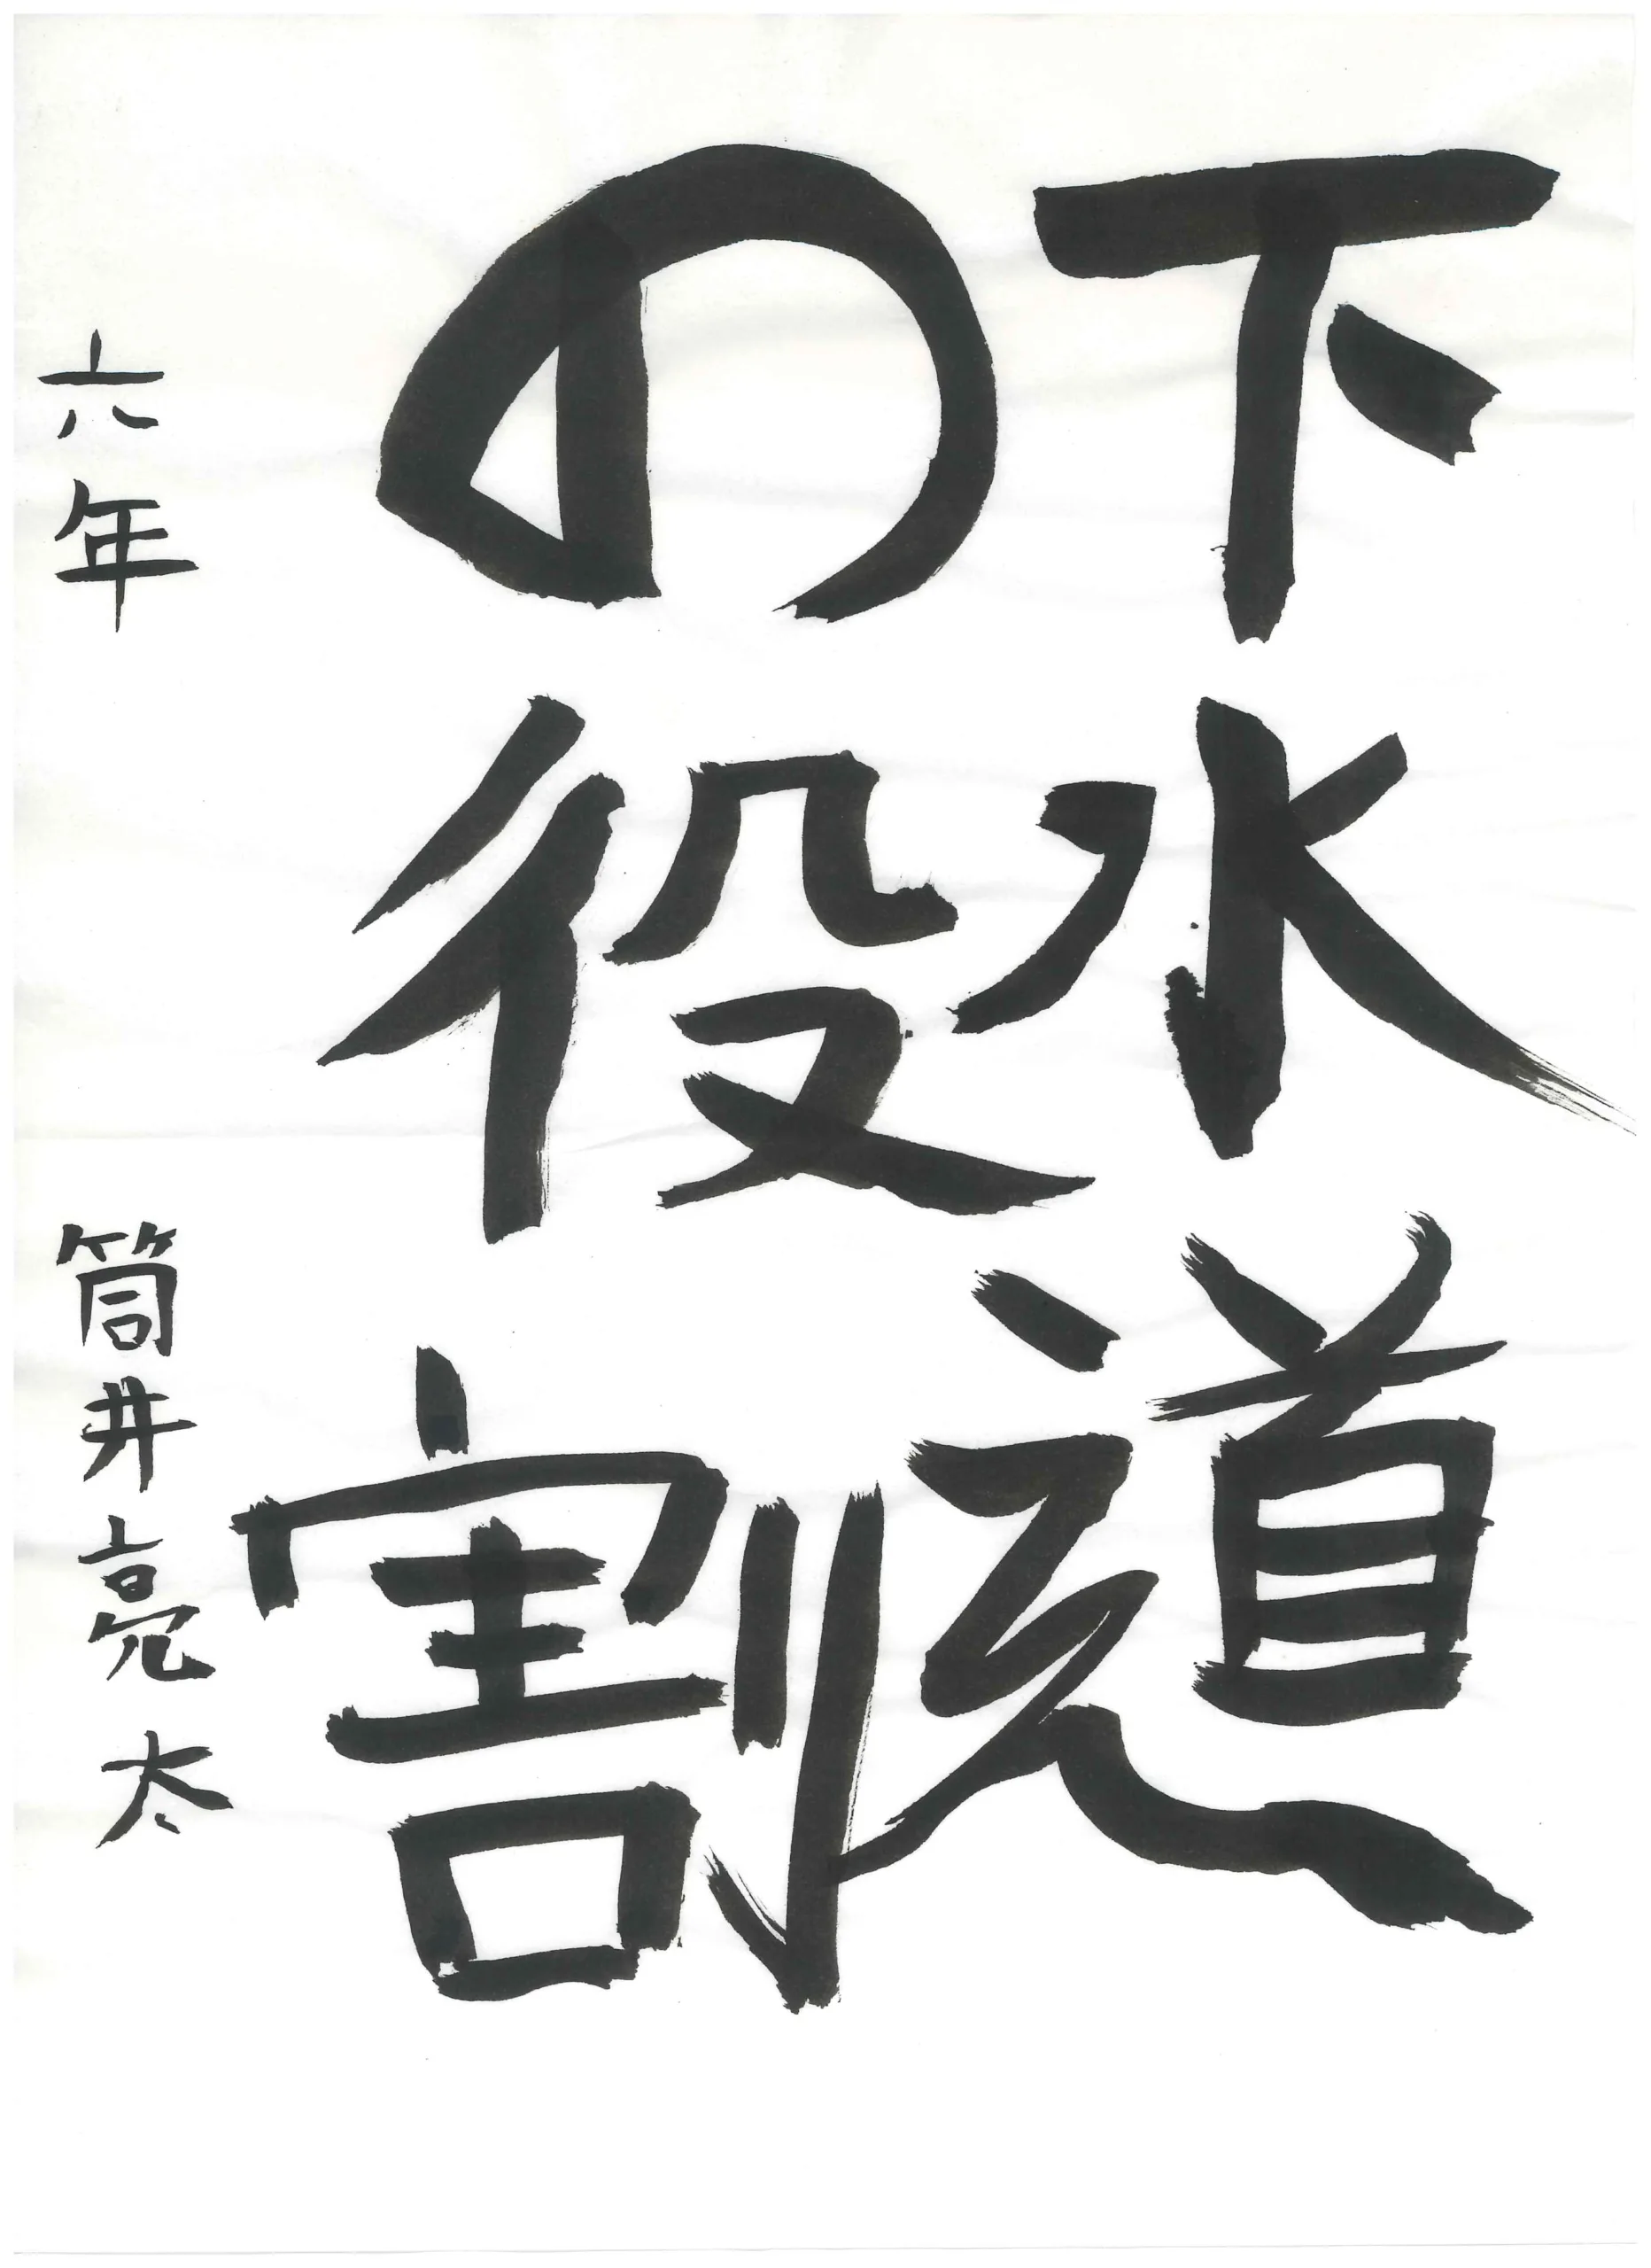 下水道
の役割
六年 筒井亮太